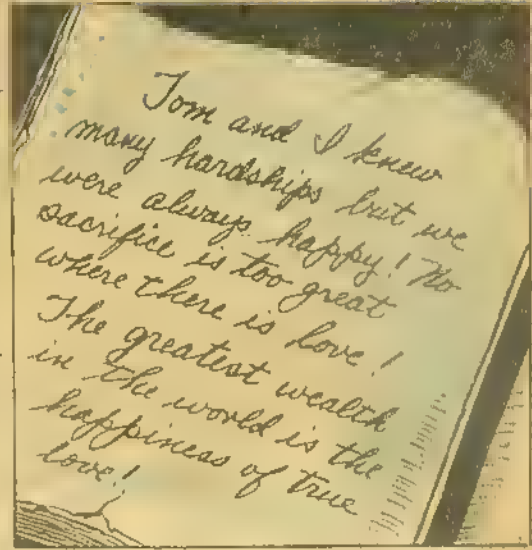 Tom and I knew
many hardships but we
were always happy! No
sacrifice is too great
where there is love!
The greatest wealth
in the world is the
happiness of true
love!